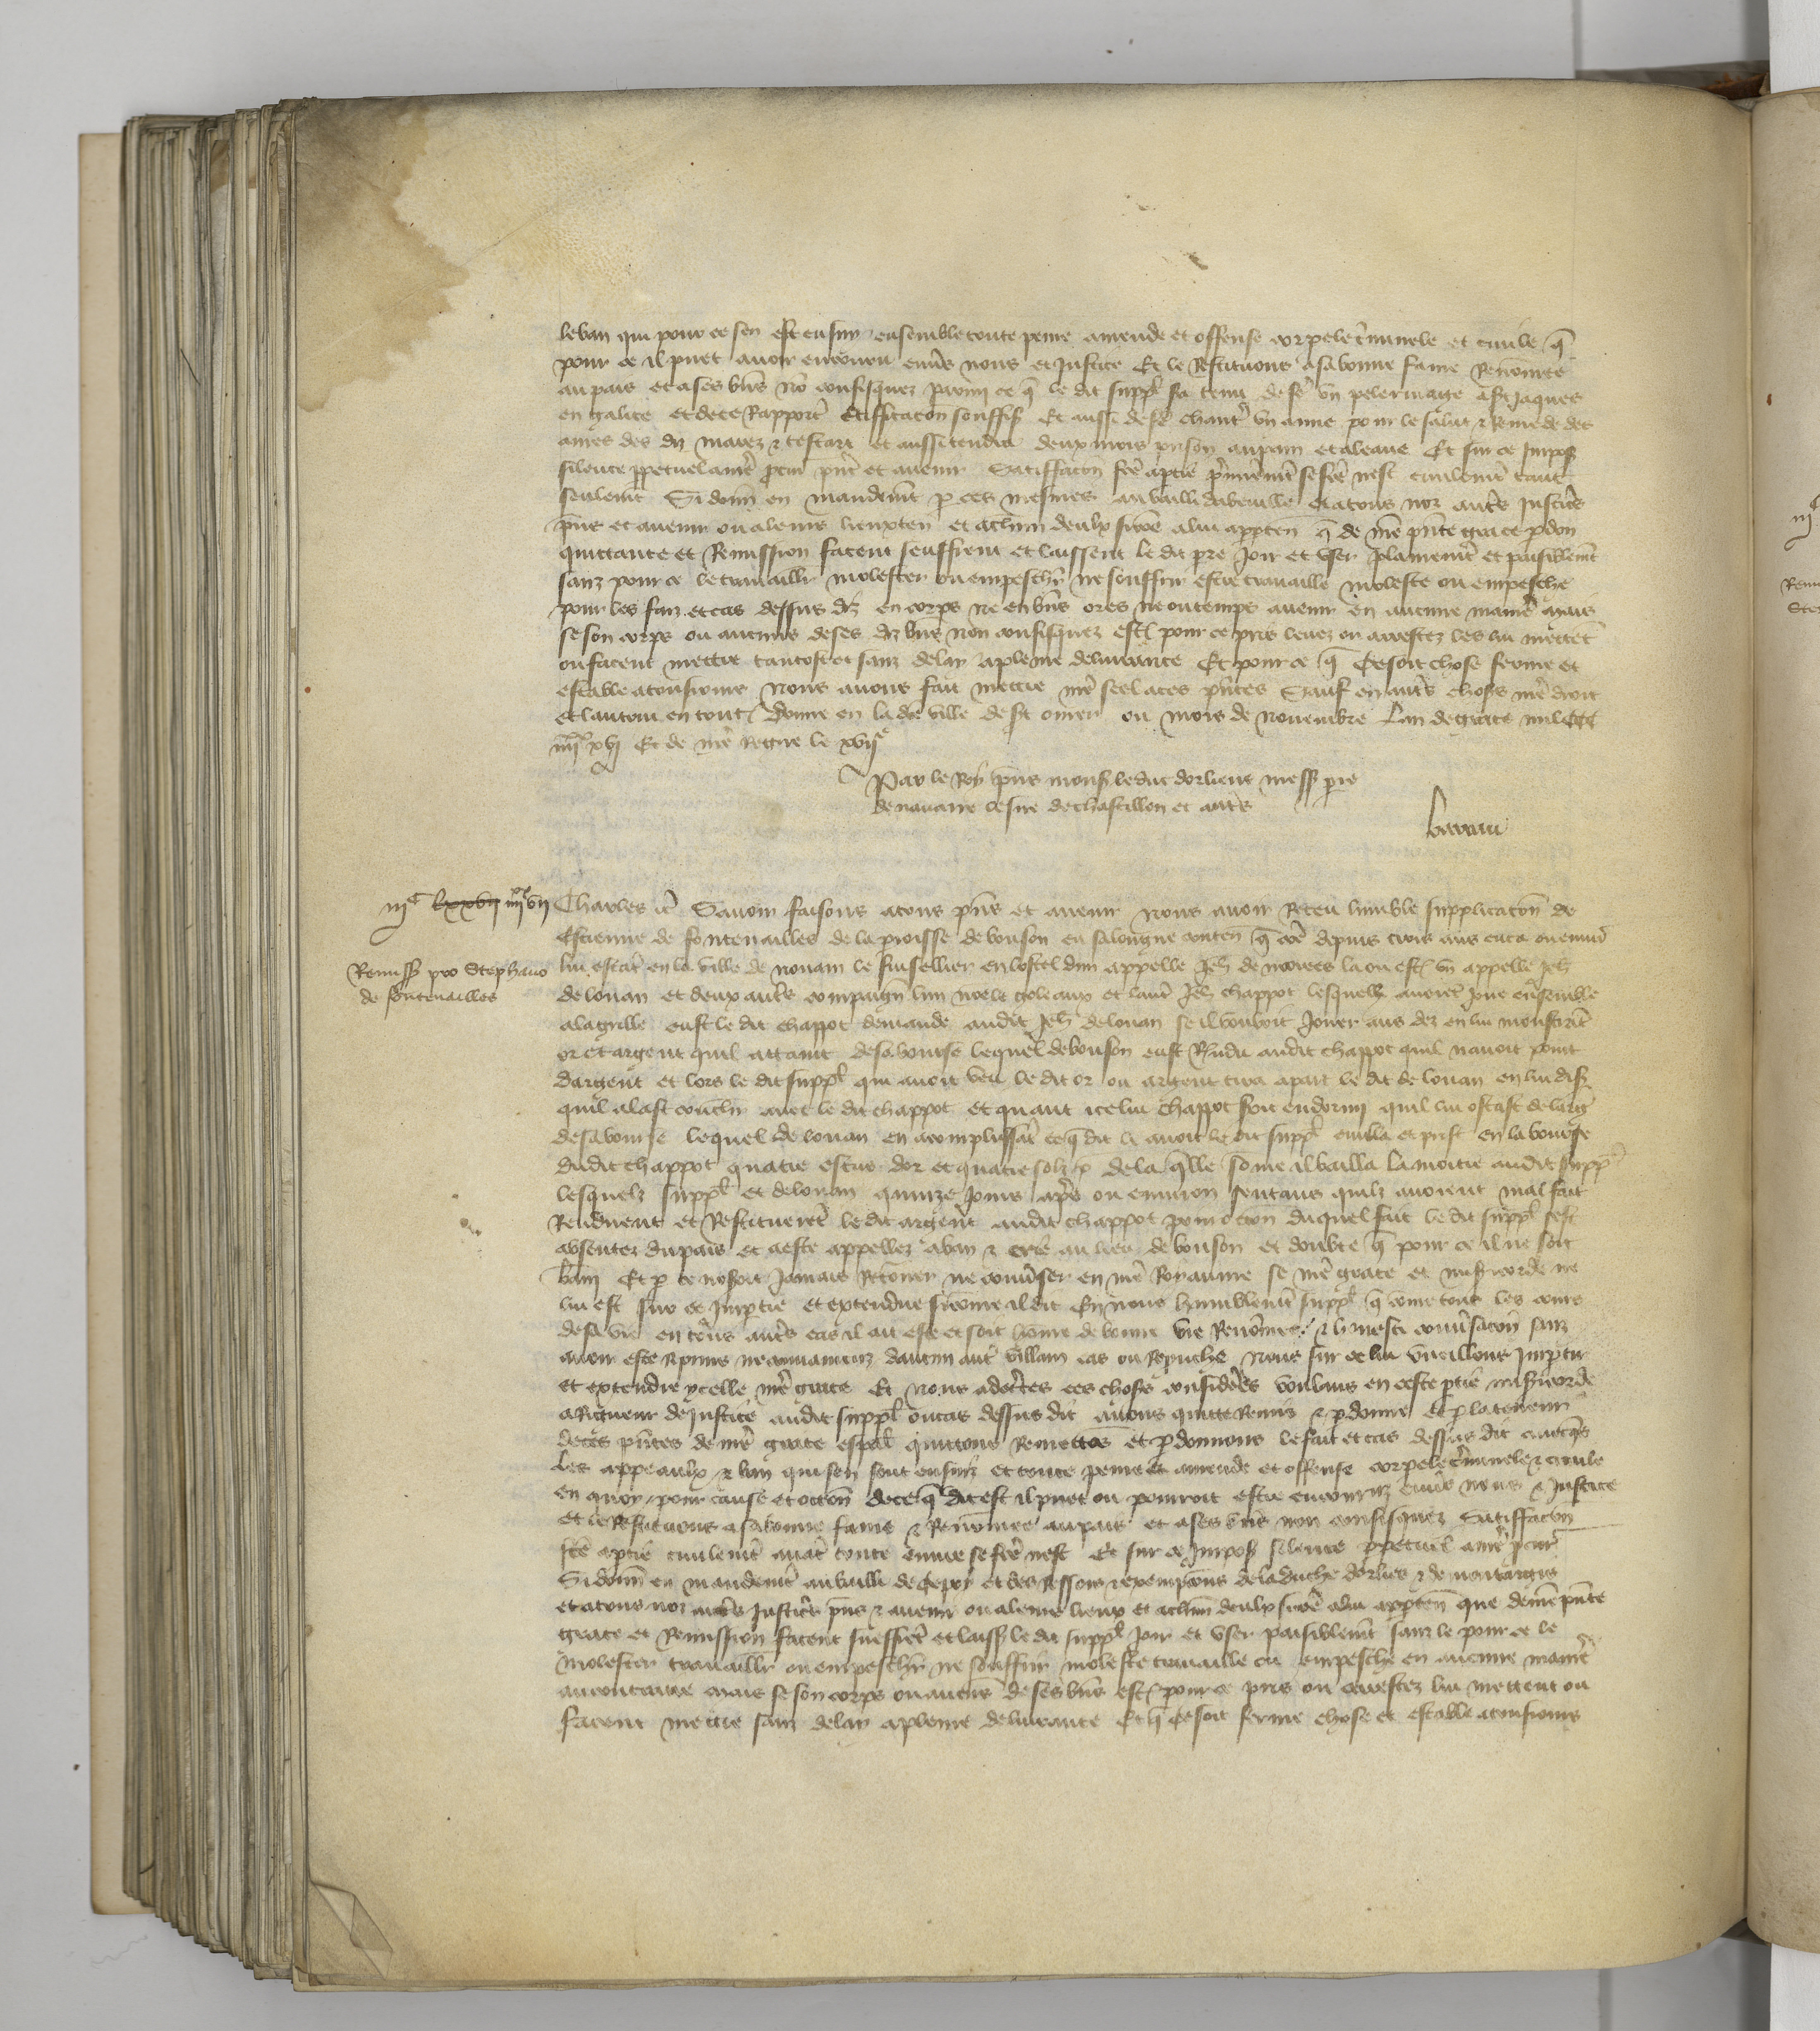 le ban qui pour ce sen est ensuy ensemble toute peine amende et offense corpele criminele et civile q̄
pour ce il puet avoir encouru envs nous et Justice Et le Restituons a sa bonne fame Renōmee
au pais et a ses bn̄s nō confisquez parmi ce q̄ le dit supplt̄ sa tenu de fē un pelerinage a st Jaques
en galice et de ce Rapportr̄ Certificacōn souffis̄ Et aussi de fē chantr̄ un anne pour le salut & Remede des
ames des dis et aussi tendra deux mois prison au pain et a leaue Et sur ce Impos̄
silence ppetuel a nr̄e pcur pn̄t et avenir Satisfacōn fcē a ptie p̄mierem̄t se fcē nest civilem̄t tant
seulem̄t Si donn̄ en mandem̄t p ces mesmes au bailli et a tous noz autrs justicrs
pn̄s et avenir ou a leurs lieuxten̄ et a chūn deulx sicōe a lui apptēn q̄ de nr̄e pn̄te grace pdon
quittance et Remission facent seuffrent et laissent le dit pre Joir et user plainem̄t et paisiblem̄t
sanz pour ce le travaillr molester ou empeschr̄ ne souffrir estre travaille moleste ou empesche
pour les faiz et cas dessus dis en corps ne en bn̄s ores ne ou temps avenir en aucune maner̄ mais
se son corps ou aucuns de ses diz bn̄s non confisquez est pour ce pris levez ou arrestez les lui mettet̄
ou facent mettre tantost et sanz delay a pleine delivrance Et pour ce q̄ Ce soit chose ferme et
estable a tousiours Nous avons fait mettre nr̄e scel a ces pn̄tes Sauf en autrs choses nr̄e droit
et lautrui en tout Donne en la dce ville de st omer ou mois de Novembre Lan de grace mil CCC
iiiixx xvj Et de nr̄e Regne le xvije
Par le Roy pn̄s mons̄ le duc dorliens mess̄ pre
de navarre le sire de chastillon et autrs
Barrau
iijc lxxvij iiiixx vij
Remiss̄ pro Stephano
de fontenailles
Charles &c Savoir faisons a tous pn̄s et avenir Nous avoir Receu humble supplicacōn de
Estienne de fontenailles de la proisse de bouson en saloigne conten̄ q̄ cōe depuis trois ans enca ou environ̄
lui estat̄ en la ville de nouam le fuisellier en lostel dun appelle Jeh̄ de la ou est un appelle Jeh̄
de louan et deux autrs compaign̄ lun et lautr̄ Jeh̄ chappot lesquelx avoiet̄ Joue ensemble
a la grille eust le dit chappot demande audit Jeh̄ de louan se il vouloit Jouer aus dez en lui monstrāt
or et argent quil attaint de sa bourse lequel de louson eust Rn̄du audit chappot quil navoit point
dargent et lors le dit supplt̄ qui avoit veu le dit or ou argent tira apart le dit de louan en lui dis̄
quil alast couchr̄ avec le dit chappot et quant icelui chappot soit endormi quil lui ostast de larḡ
de sa bourse lequel de louan en acomplissāt ce q̄ dit le avoit le dit supplt̄ embla et prist en la bourse
dudit chappot quatre escus dor et quatre solz p de la qlle somme il bailla la moitie audit supplt̄
lesquelz supplt̄ et de louan quinze Jours aprs ou environ sentans quilz avoient mal fait
Rendirent et Restituerēt le dit argent audit chappot pour occōn duquel fait le dit supplt̄ sest
absentez du pais et a este appellez a ban & crie au lieu de bouson et doubte q̄ pour ce il ne soit
bāni Et p ce nosoit Jamais Retorner ne convser en nr̄e Royaume se nr̄e grace et mis̄icorde ne
lui est sur ce Impartie et extendue sicomme il dit En nous humblem̄t suppl̄ q̄ come tout les cours
de sa vie en tous autrs cas il ait este et soit homme de bonne vie Renōmee & honeste convsacōn sanz
avoir este Reprins ne convaincuz daucun autr̄ villain cas ou Reprouche Nous sur ce lui vueillons Impartir
et extendre ycelle nr̄e grace Et nous adcertes ces choses considerees voulans en ceste ptie mis̄icorde
a Rigueur de Justice audit supplt̄ ou cas dessus dit avons quitte Remis & pdonne Et p la teneur
de ces pn̄tes de nr̄e grace espāl quittons Remettōs et pdonnons le fait et cas dessus dit avecqs̄
les appeaulx & ban qui sen sont ensuiz et toute peine et amende et offense corpele criminele & civile
en quoy pour cause et occōn de ce q̄ dit est il puet ou pourroit estre encourruz envs nous & Justice
et le Restituons a sa bonne fame & Renōmee au pais et a ses bn̄s non confisquez Satisfacōn
fcē a ptie civilem̄t avāt toute euvre se fcē nest Et sur ce Impos̄ silence ppetuel a nr̄e pcur̄
Si donn̄ en mandem̄t au bailli de Cepoy et des Ressors & exempcōns de la duche dorliens & de montargis
et a tous noz autrs Justicrs pn̄s & avenir ou a leurs lieux et a chūn deulx sicōe a lui apptēn que de nr̄e pn̄te
grace et Remission facent sueffrēt et laiss̄ le dit supplt̄ Joir et user paisiblem̄t sanz le pour ce le
molester travaillr ou empeschr̄ ne souffrir moleste travaille ou empesche en aucune maner̄
au contraire mais se son corps ou aucuns de ses bn̄s est pour ce pris ou arrestez lui mettent ou
facent mettre sanz delay a pleine delivrance Et q̄ Ce soit ferme chose et estable a tousiours